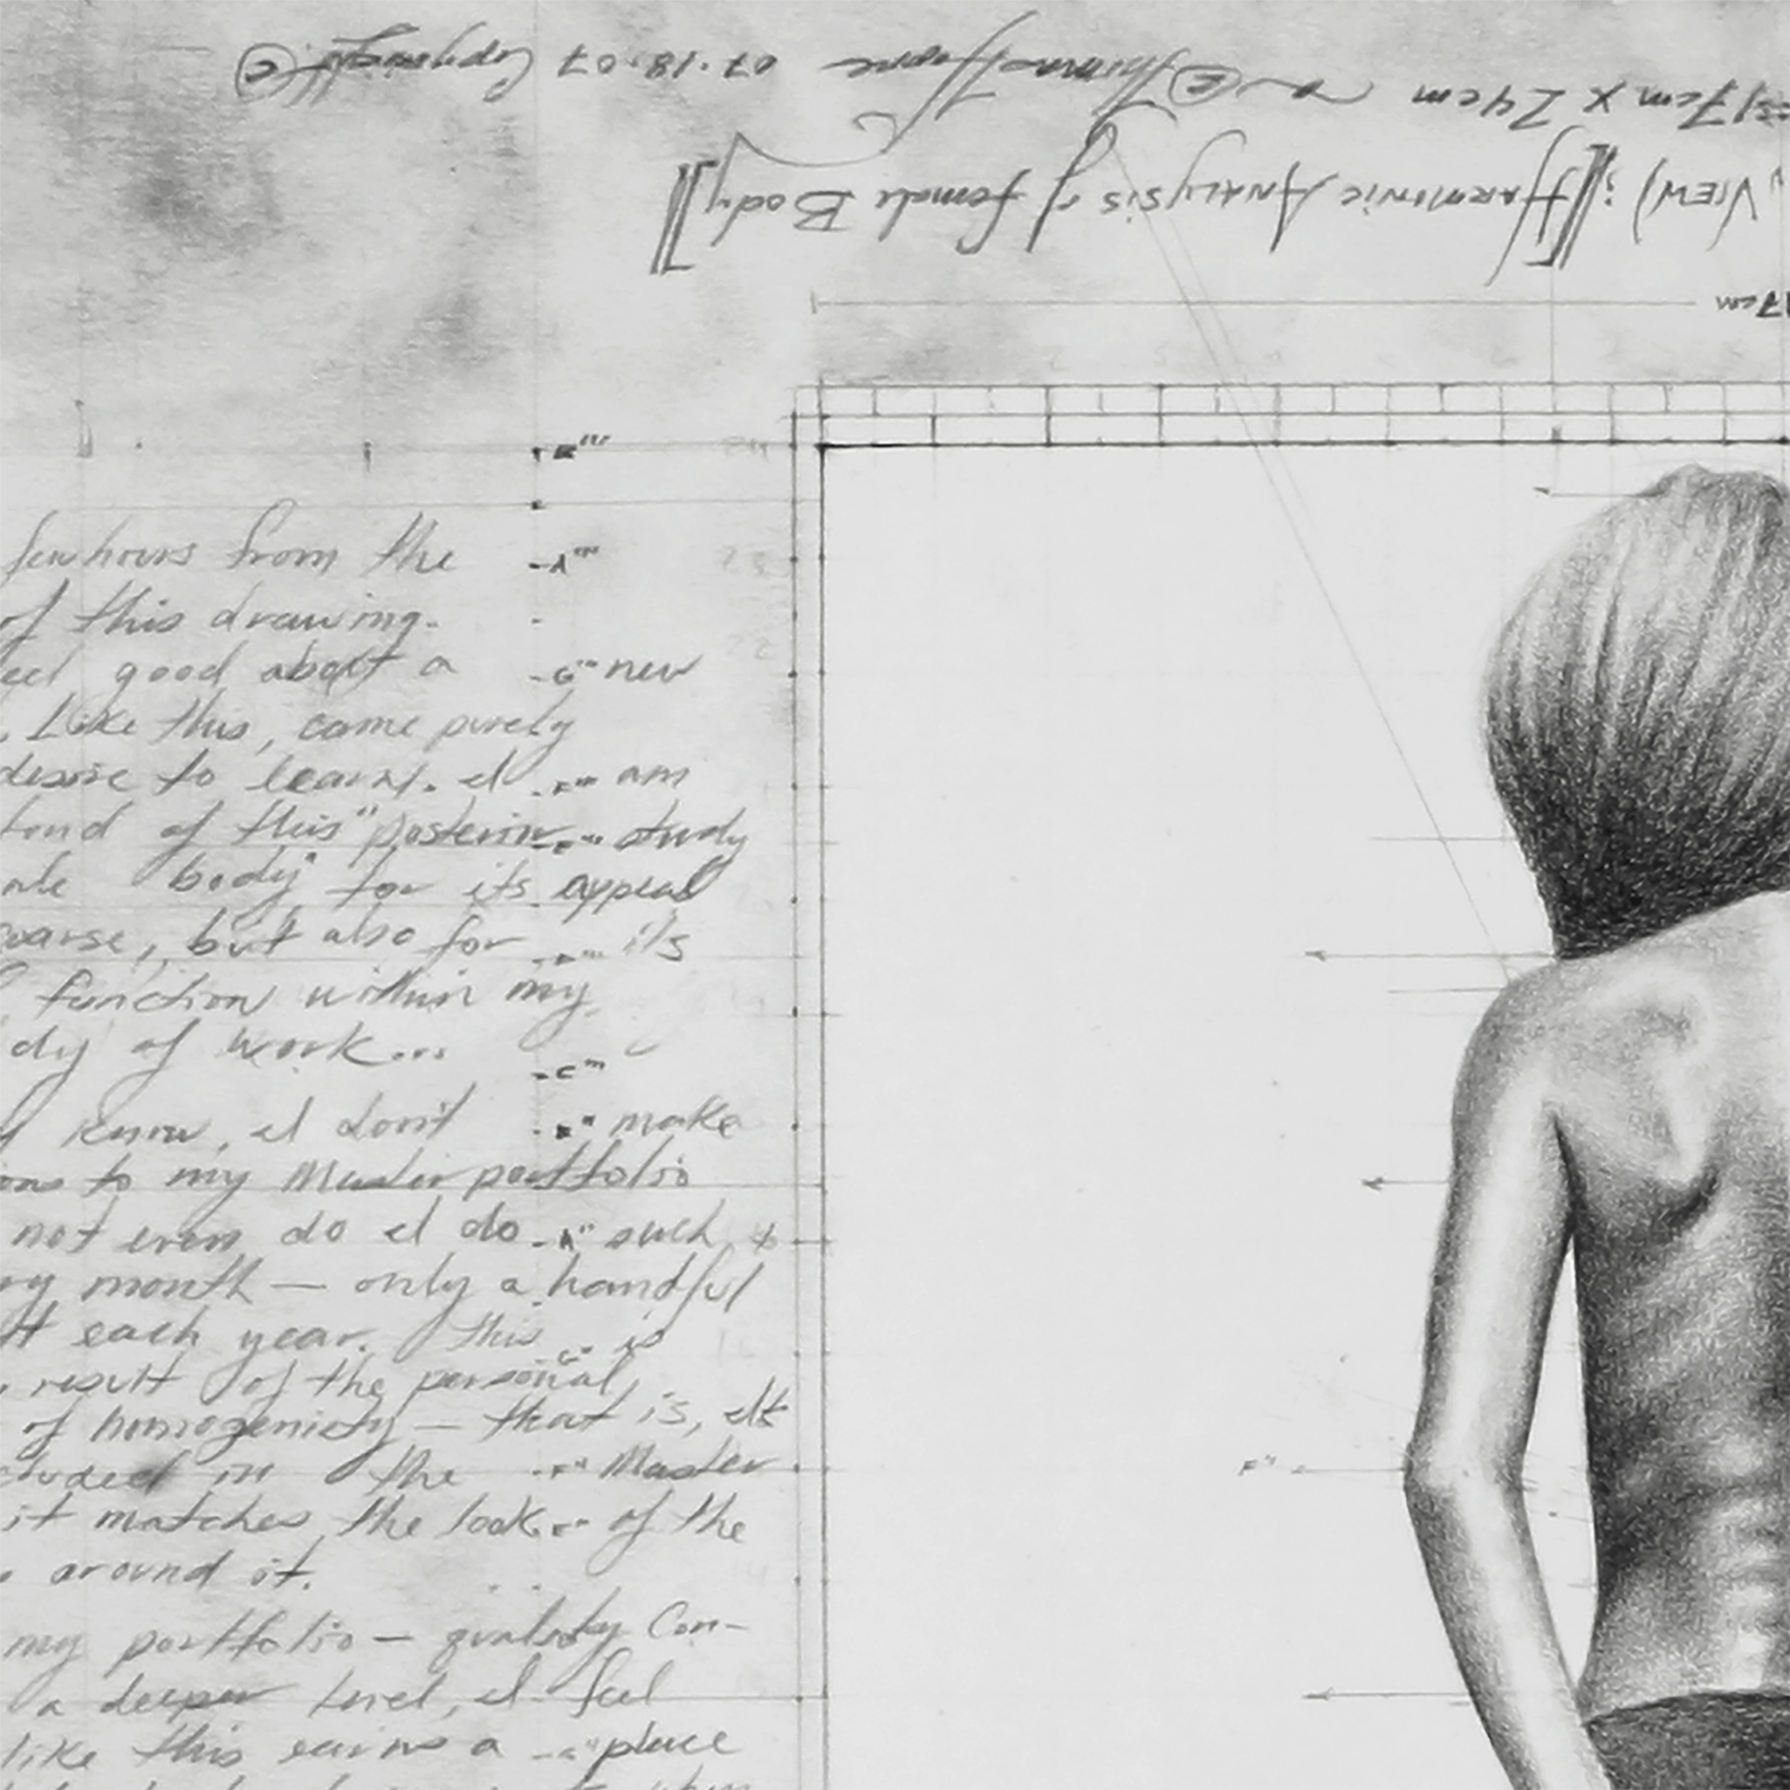 =17cm X 24cm ~ © 07.18.07 Copyright ©
VIEW) ; [[HARMONIC ANALYSIS of female Body]]
7cm
few hours from the
of this drawing.
good about a new
. Like this, came purely
desire to learn. I am
fond of this "posterior study
body" for its appeal
, but also for its
, function within my
dy of work...
know, I don't make
ons to my Master portfolio
not even do I do such
ry month — only a handful
it each year. This is
result of the personal
of homogeniety — that is, It
cluded in the Master
it matches the look of the
around it.
my portfolio — quality Con-
a deeper level, I feel
like this earns a place
when
F"